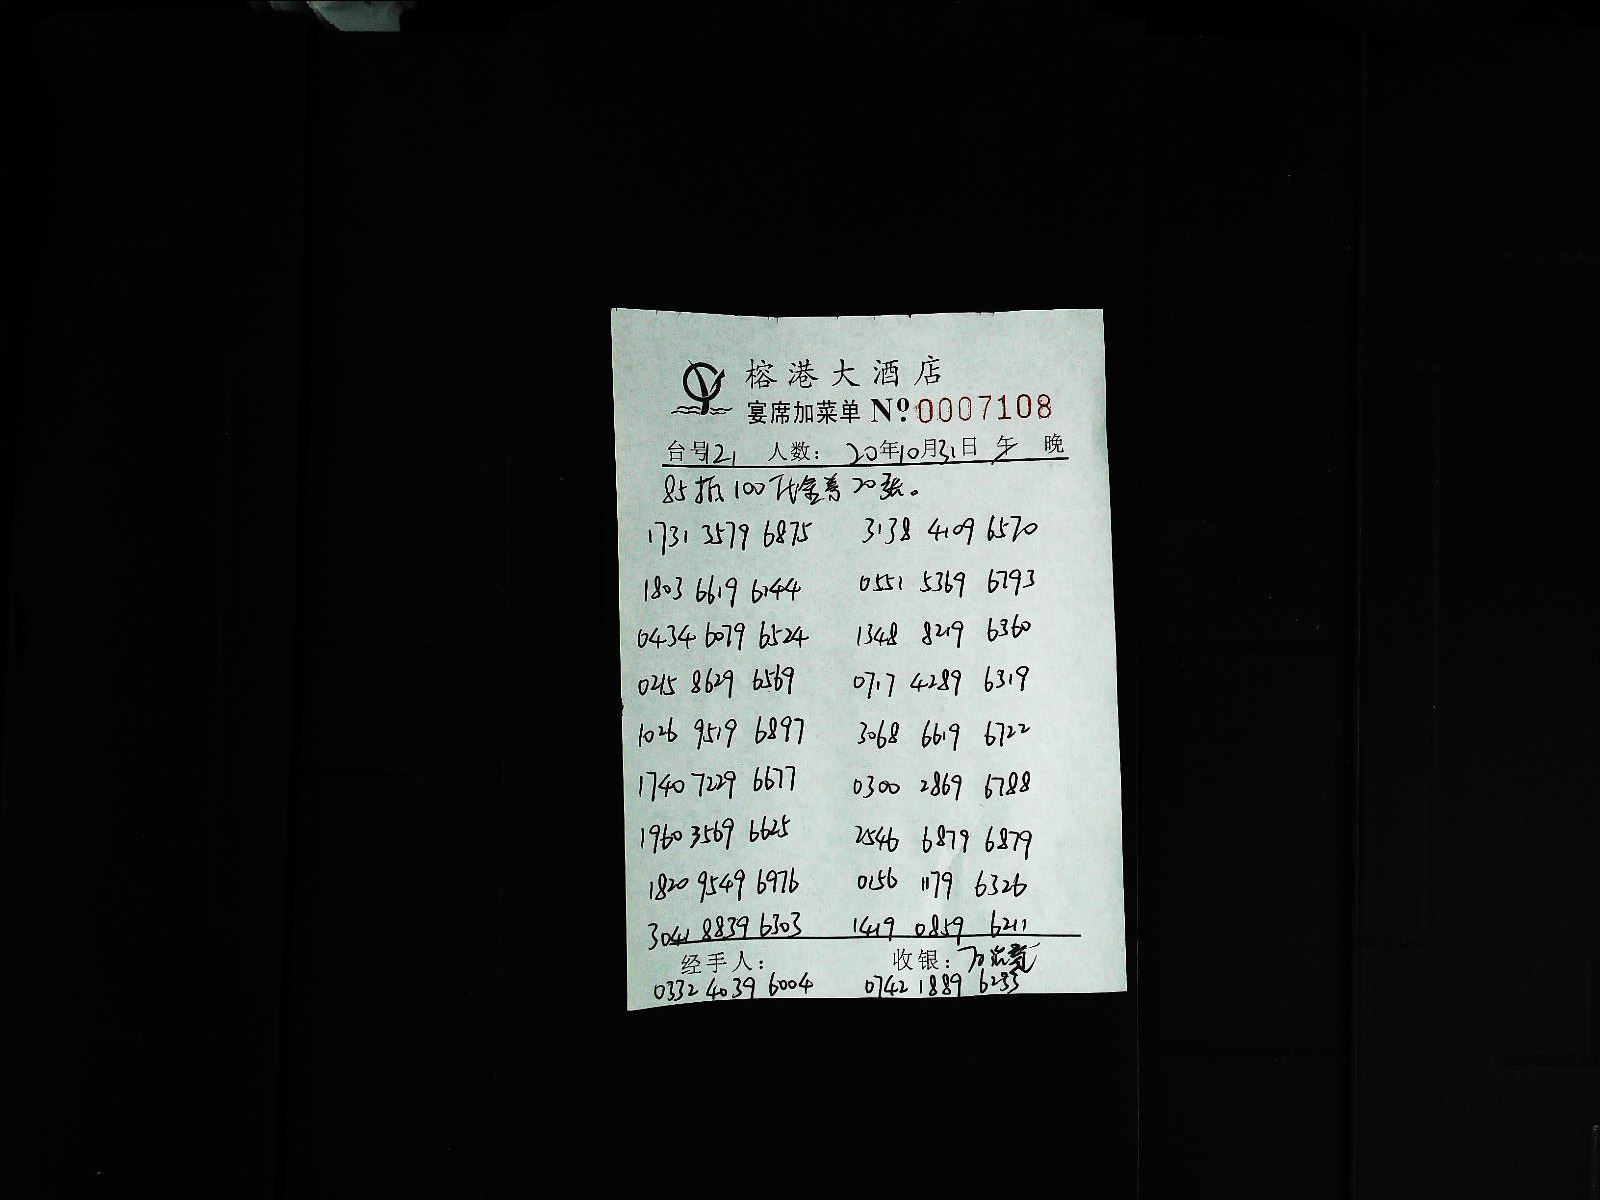 榕港大酒店
宴席加菜单 Nº 0007108
台号121 人数： 20年10月31日 午 晚
85折100代金券20张。
1731 3579 6875 3138 4109 6570
1803 6619 6144 0551 5369 6793
0434 6079 6524 1348 8219 6360
0215 8629 6569 0717 4289 6319
1026 9519 6897 3068 6619 6722
1740 7229 6677 0300 2869 6788
1960 3569 6625 2546 6879 6879
1820 9549 6976 0156 1179 6326
3041 8839 6303 1419 0859 6211
经手人： 收银：
0332 4039 6004 0742 1889 6233